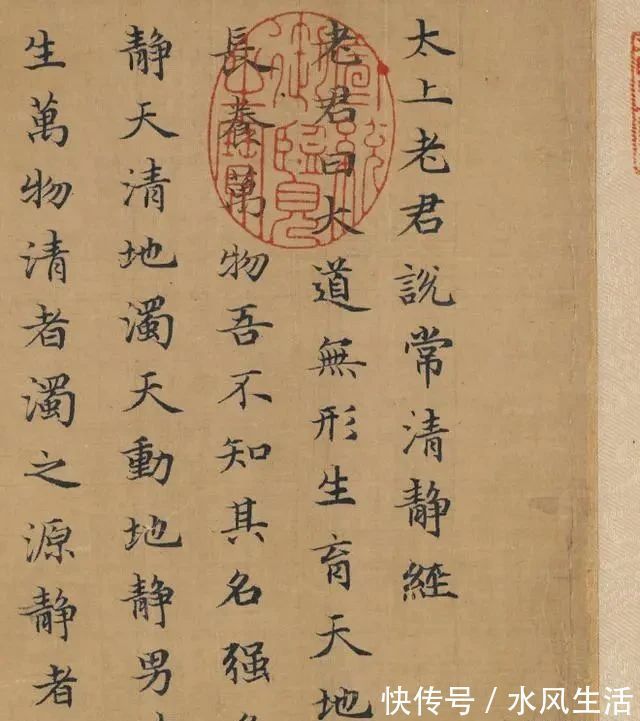 太上老君說常清静經
老君曰大道無形生育天地
長養萬物吾不知其名强
静天清地濁天動地静男
生萬物清者濁之源静者
快传号 / 水风生活